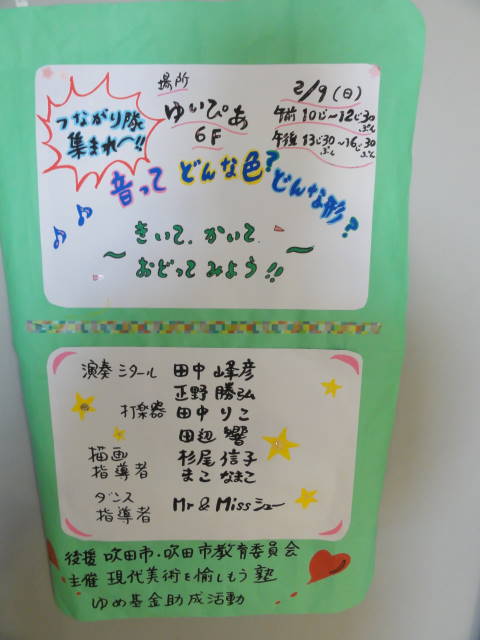 つながり隊
集まれ〜!!
場所
ゆいぴあ
6F
2/9(日)
午前10じ〜12じ30ぷん
午後13じ30ぷん〜16じ30ぷん
音って どんな色? どんな形?
〜きいて、かいて、
おどってみよう!!〜
演奏 シタール 田中 峰彦
正野 勝弘
打楽器 田中 りこ
田辺 響
描画指導者 杉尾 信子
まこ なまこ
ダンス指導者 Mr & Miss シュー
後援 吹田市・吹田市教育委員会
主催 現代美術を愉しもう塾
ゆめ基金助成活動